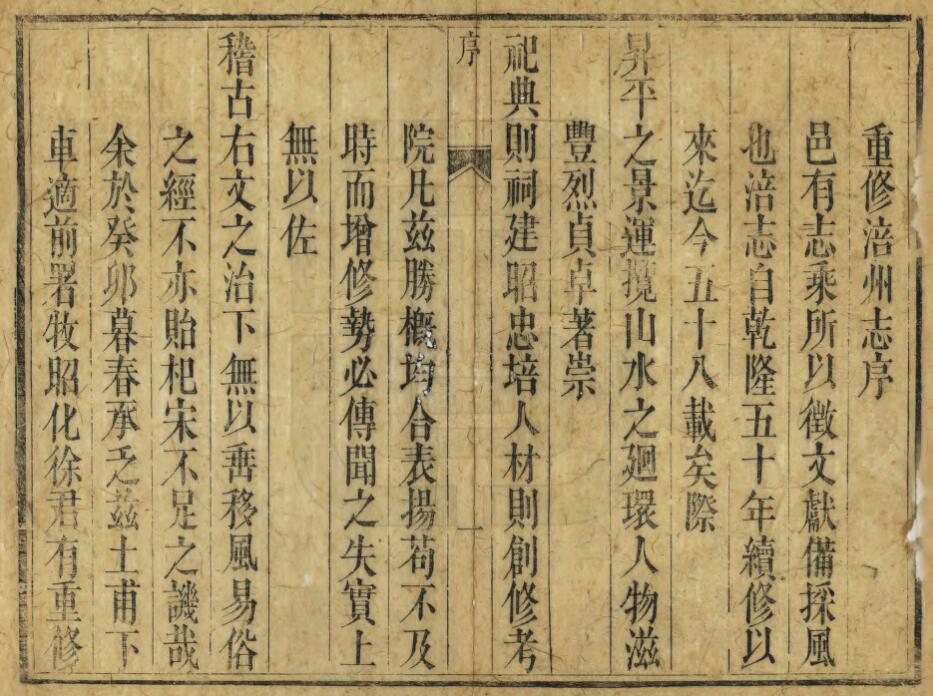 重修涪州志序
邑有志乘所以徵文獻備採風
也涪志自乾隆五十年續修以
來迄今五十八載矣際
昇平之景運攬山水之廻環人物滋
豐烈貞卓著崇
祀典則祠建昭忠培人材則創修考
序
一
院凡茲勝概均合表揚苟不及
時而增修勢必傳聞之失實上
無以佐
稽古右文之治下無以歬移風易俗
之經不亦貽杞宋不足之譏哉
余於癸卯暮春承乏茲土甫下
車適前署牧昭化徐君有重修